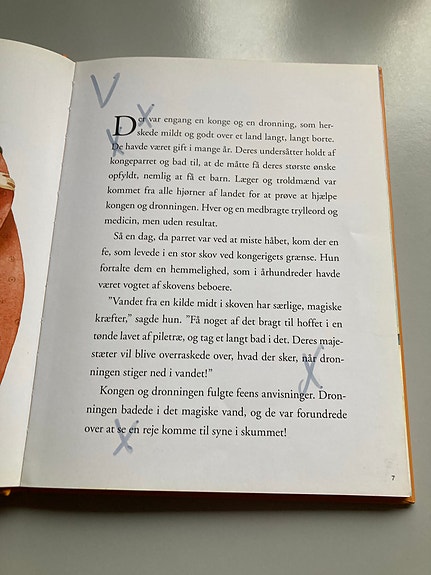 Der var engang en konge og en dronning, som her-
skede mildt og godt over et land langt, langt borte.
De havde været gift i mange år. Deres undersåtter holdt af
kongeparret og bad til, at de måtte få deres største ønske
opfyldt, nemlig at få et barn. Læger og troldmænd var
kommet fra alle hjørner af landet for at prøve at hjælpe
kongen og dronningen. Hver og en medbragte trylleord og
medicin, men uden resultat.
Så en dag, da parret var ved at miste håbet, kom der en
fe, som levede i en stor skov ved kongerigets grænse. Hun
fortalte dem en hemmelighed, som i århundreder havde
været vogtet af skovens beboere.
”Vandet fra en kilde midt i skoven har særlige, magiske
kræfter,” sagde hun. ”Få noget af det bragt til hoffet i en
tønde lavet af piletræ, og tag et langt bad i det. Deres maje-
stæter vil blive overraskede over, hvad der sker, når dron-
ningen stiger ned i vandet!”
Kongen og dronningen fulgte feens anvisninger. Dron-
ningen badede i det magiske vand, og de var forundrede
over at se en reje komme til syne i skummet!
7